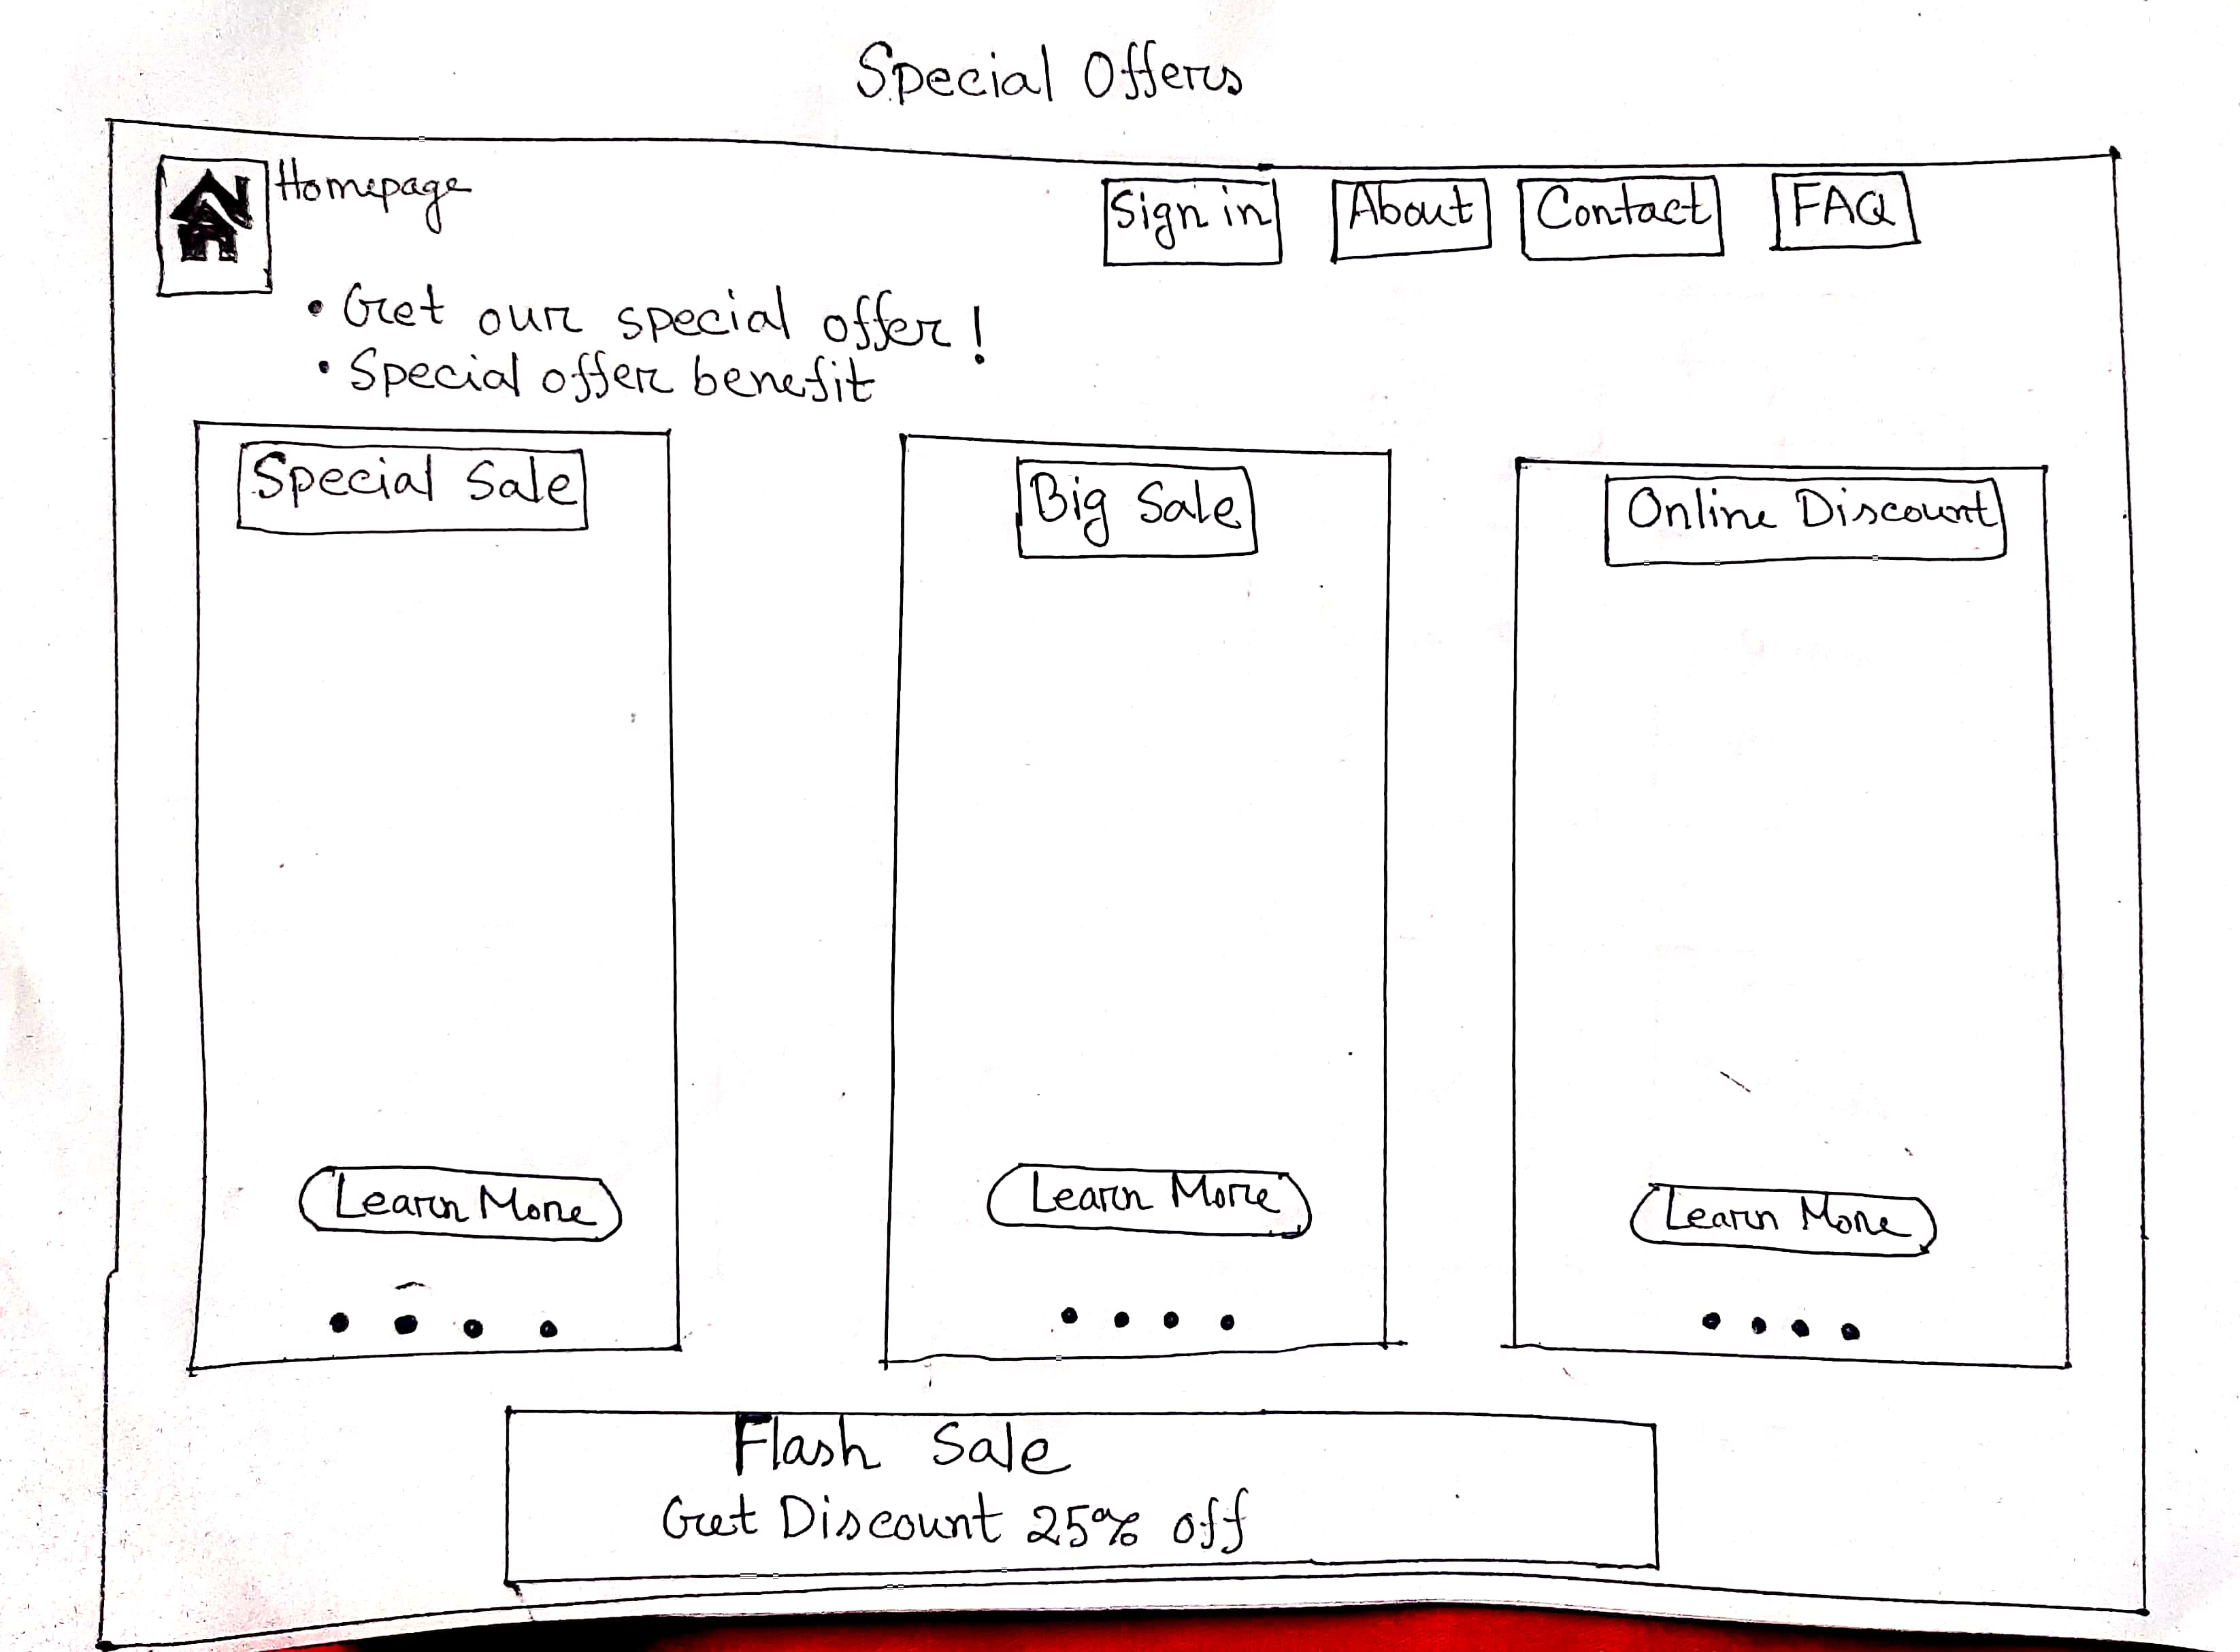 Special Offers
Homepage
Sign in About Contact FAQ
• Get our special offer!
• Special offer benefit
Special Sale
Big Sale
Online Discount
Learn More
Learn More
Learn More
Flash Sale
Get Discount 25% off